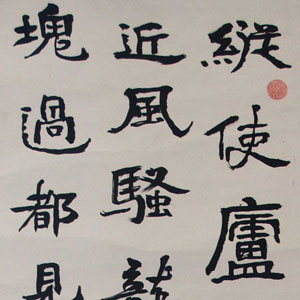 縱使盧
近風騷龍
塊過都見